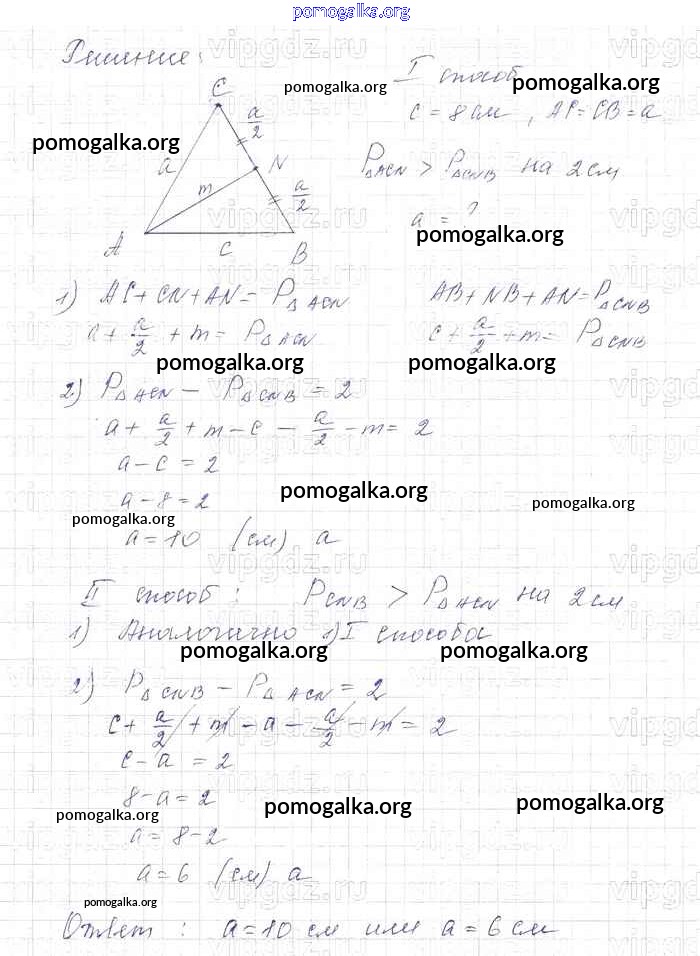 pomogalka.org
Решение:
I способ
pomogalka.org
pomogalka.org
c = 8 см, AC = CB = a
pomogalka.org
P△ACN > P△CNB на 2 см
a = ?
pomogalka.org
C
a/2
a
N
m
a/2
A
c
B
1) AC + CN + AN = P△ACN
AB + NB + AN = P△CNB
a + a/2 + m = P△ACN
c + a/2 + m = P△CNB
pomogalka.org
pomogalka.org
2.) P△ACN − P△CNB = 2
a + a/2 + m − c − a/2 − m = 2
a − c = 2
pomogalka.org
a − 8 = 2
pomogalka.org
pomogalka.org
a = 10 (см) a
II способ: PCNB > P△ACN на 2 см
1) Аналогично 1) I способа
pomogalka.org
pomogalka.org
2) P△CNB − P△ACN = 2
c + a/2 + m − a − a/2 − m = 2
c − a = 2
8 − a = 2
pomogalka.org
pomogalka.org
pomogalka.org
a = 8 − 2
a = 6 (см) a
pomogalka.org
Ответ: a = 10 см или a = 6 см